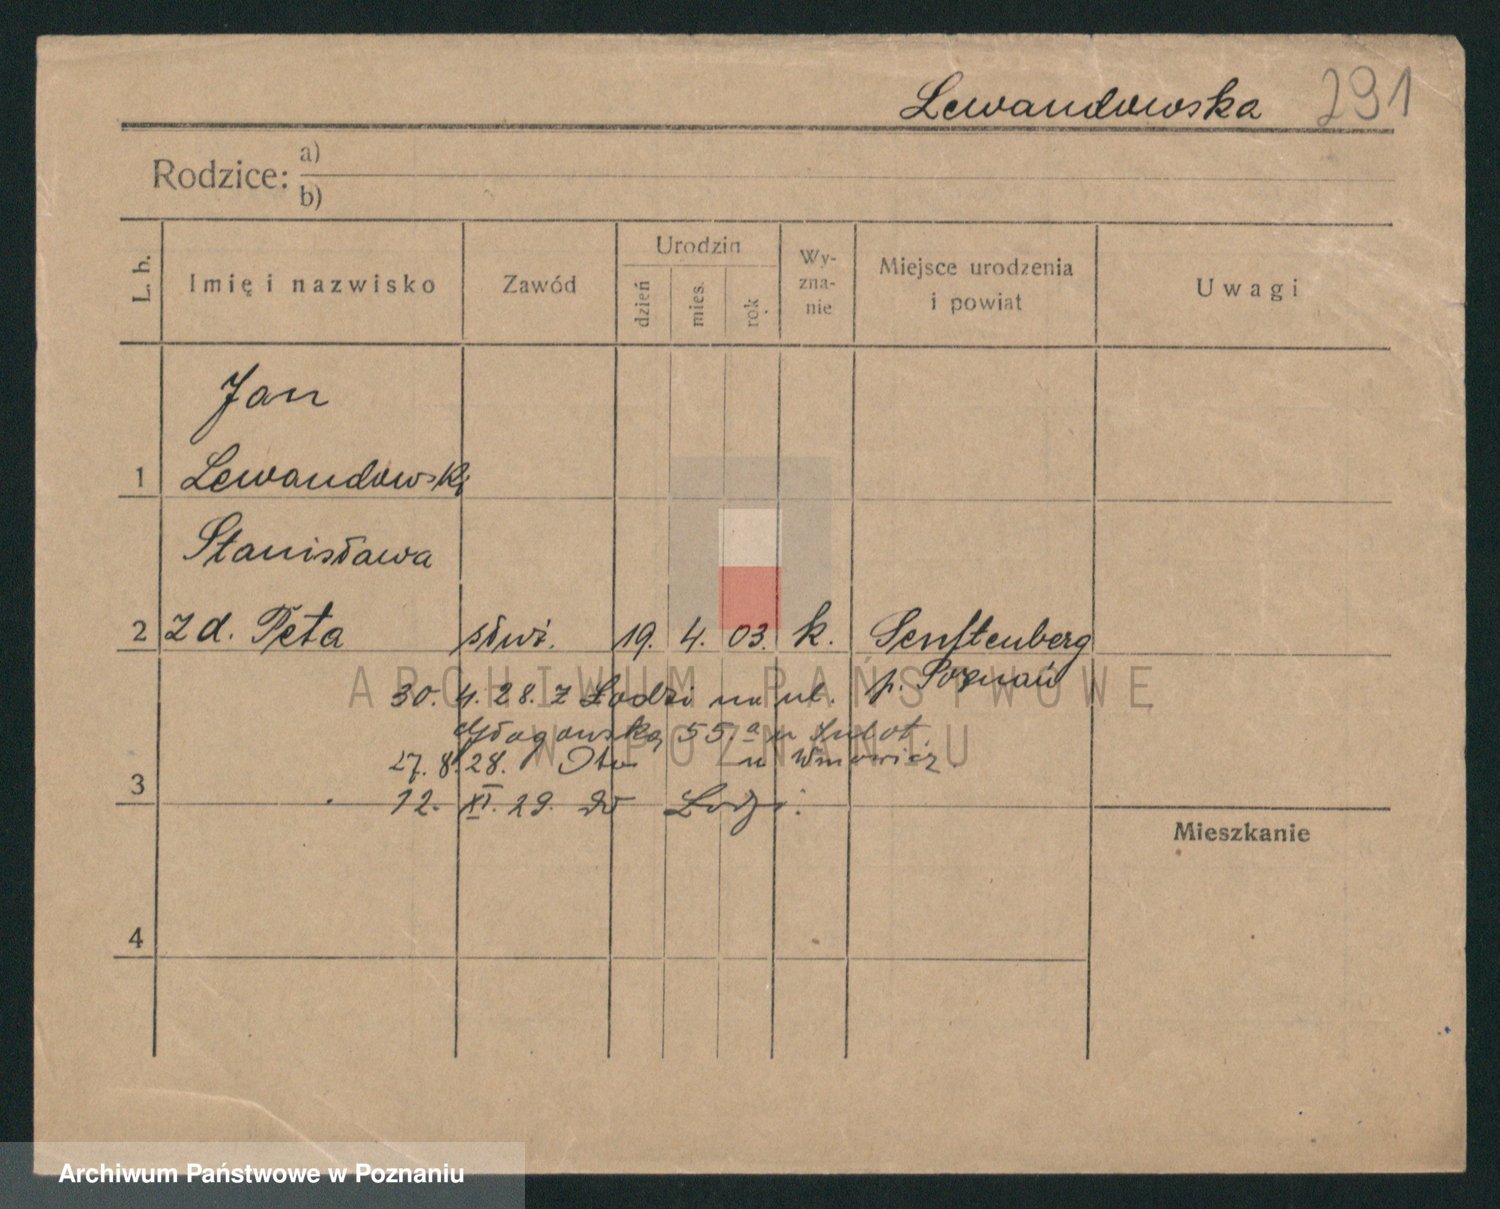 Lewandowska 291
Rodzice: a)
b)
L. b. Imię i nazwisko Zawód Urodzin dzień mies. rok Wy-zna-nie Miejsce urodzenia i powiat Uwagi
Jan
1 Lewandowski
Stanisława
2 zd. Peta 19. 4. 03. k. Senftenberg
p. Poznań
30. 4. 28. z Łodzi na ul.
Głogowską 55.a u
27. 8. 28. u
3
12. XI. 29. do Łodzi.
Mieszkanie
4
ARCHIWUM PAŃSTWOWE
W POZNANIU
Archiwum Państwowe w Poznaniu